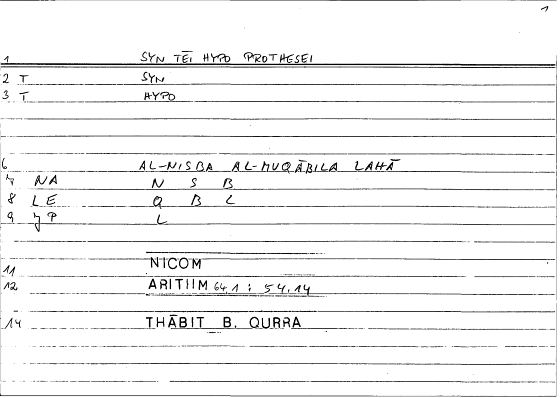 1
1 SYN TĒI HYPO PROTHESEI
2 T SYN
3 T HYPO
6 AL-NISBA AL-MUQĀBILA LAHĀ
7 NA N S B
8 LE Q B L
9 JP L
11 NICOM
12 ARITIIM 64,1 : 54,14
14 THĀBIT B. QURRA